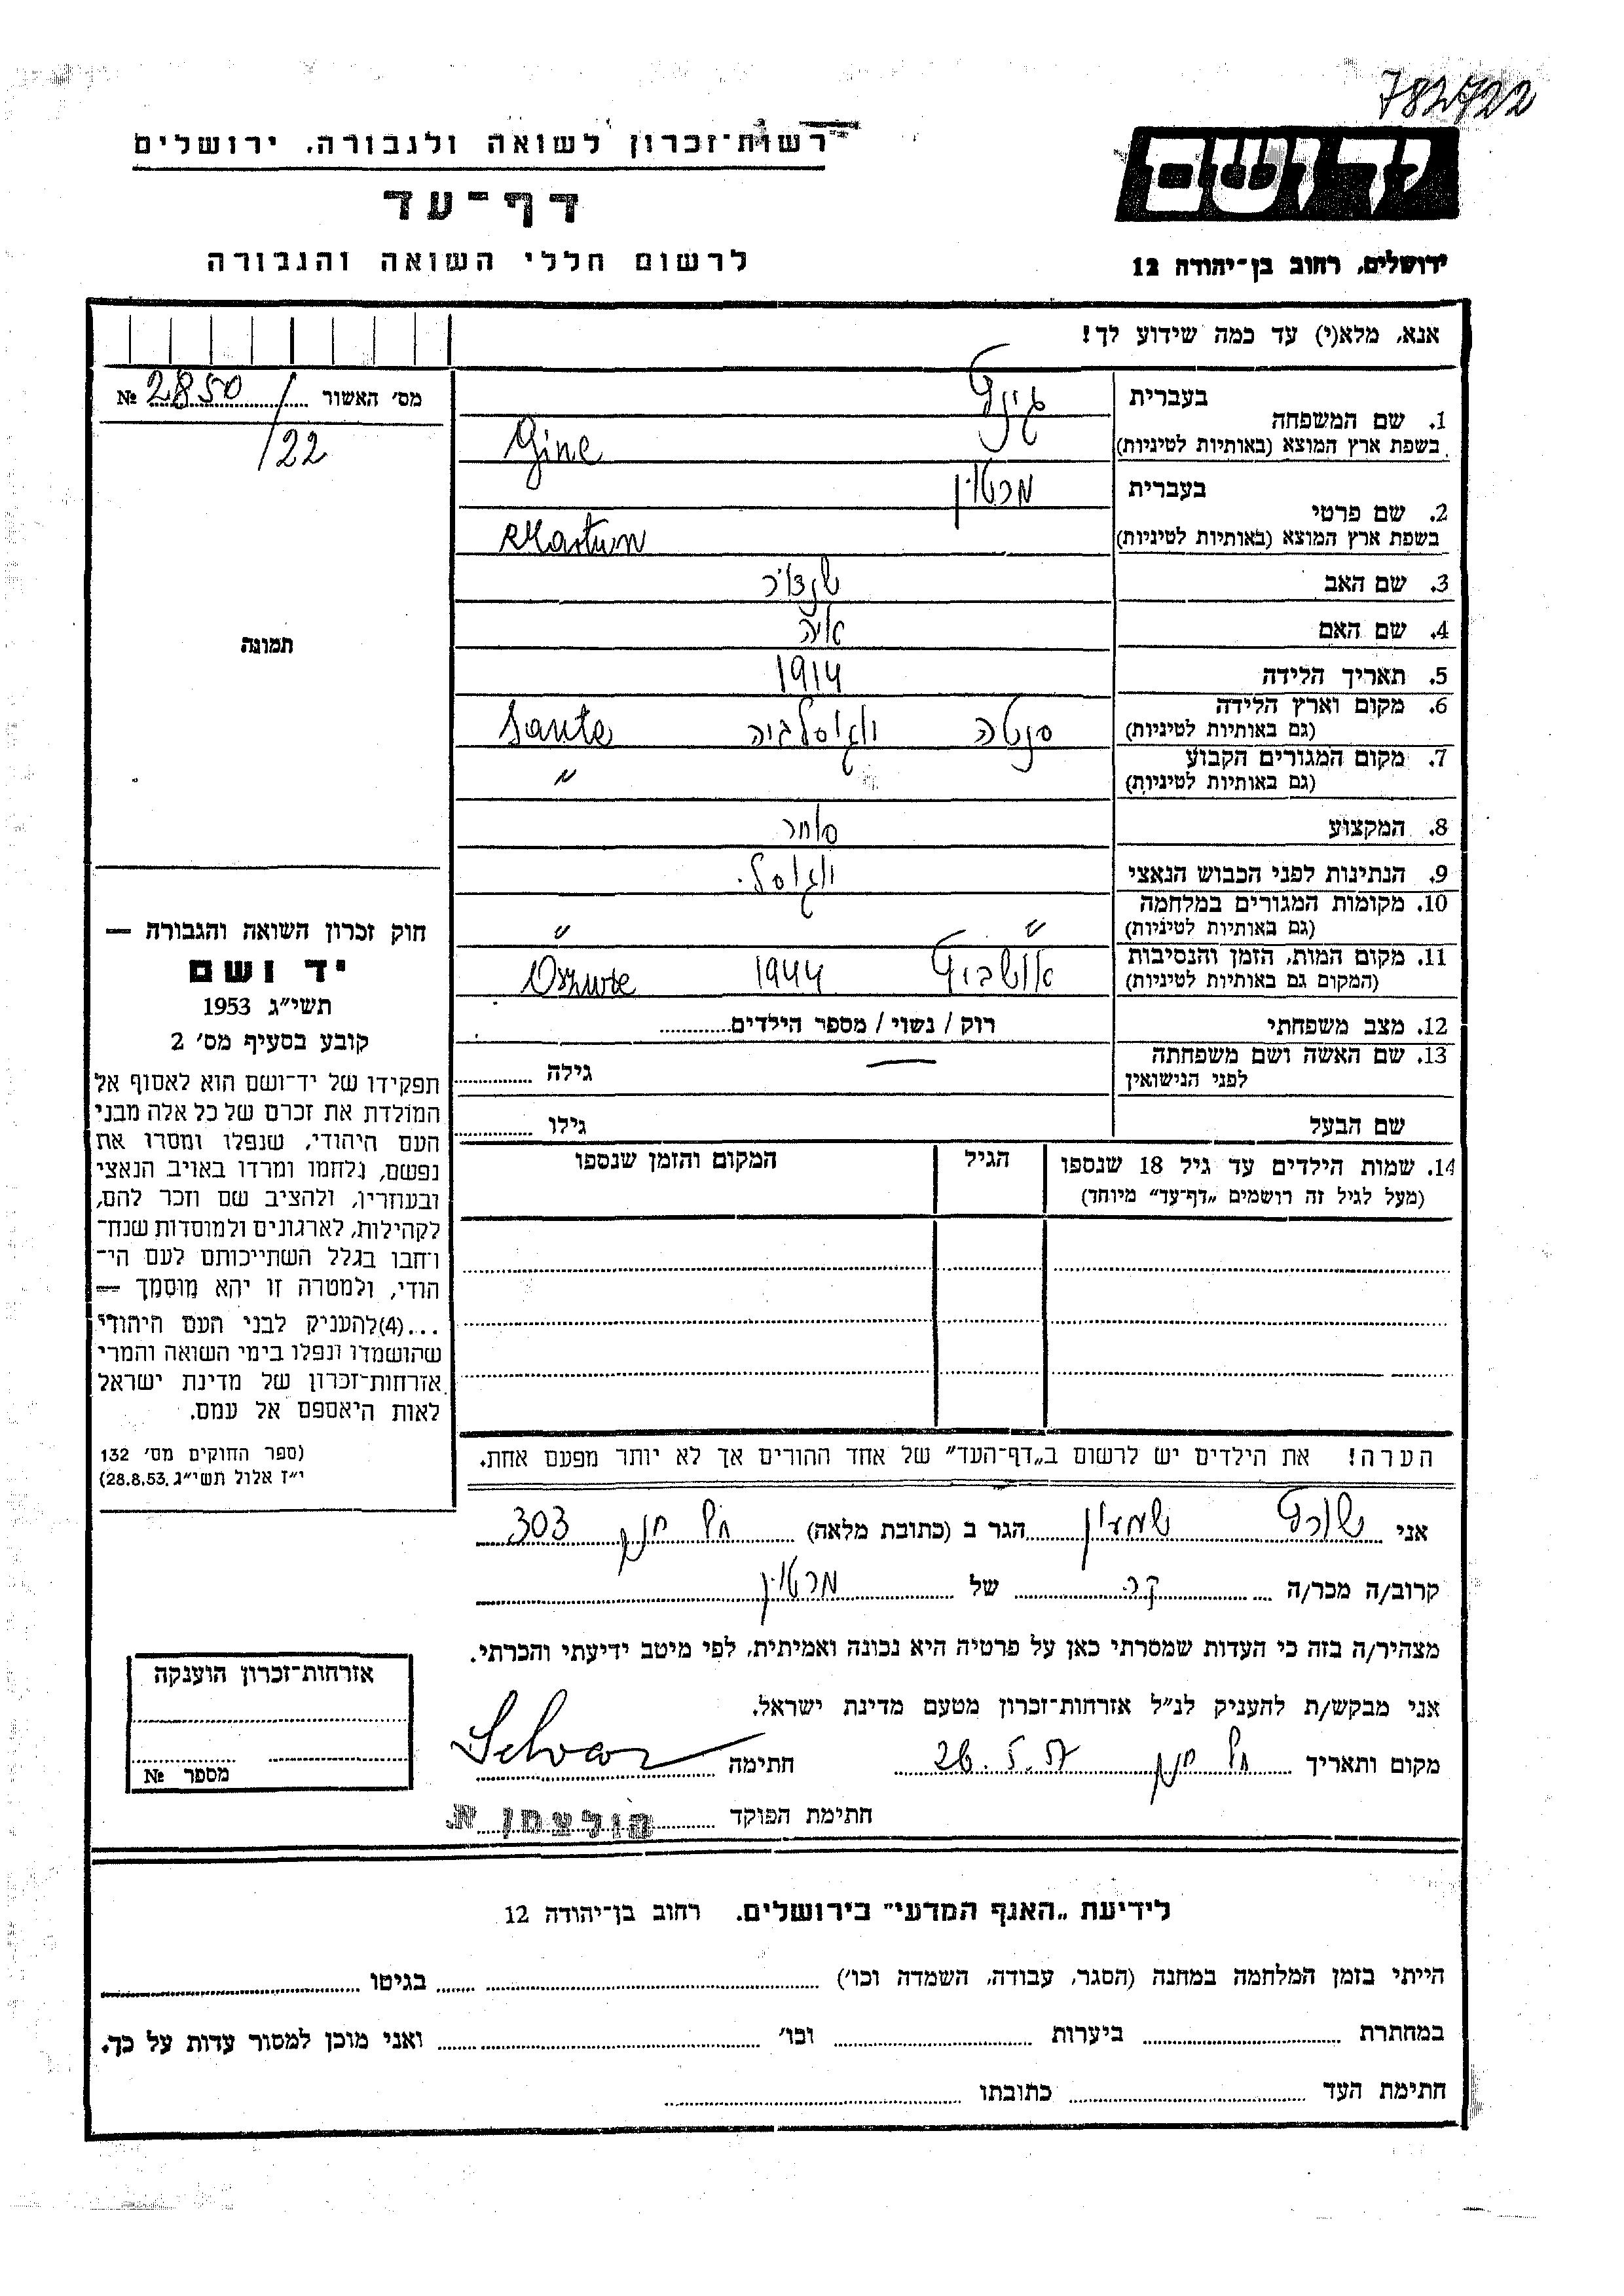 782722
רשות־זכרון לשואה ולגבורה. ירושלים
דף־עד
לרשום חללי השואה והגבורה
יד ושם
ירושלים, רחוב בן־יהודה 12
אנא, מלא(י) עד כמה שידוע לך!
מס׳ האשור 2850 №
/22
תמונה
1. שם המשפחה בעברית
בשפת ארץ המוצא (באותיות לטיניות) Gine
2. שם פרטי בעברית מרטין
בשפת ארץ המוצא (באותיות לטיניות)
3. שם האב
4. שם האם
5. תאריך הלידה 1914
6. מקום וארץ הלידה
(גם באותיות לטיניות) סנטה יוגוסלביה
7. מקום המגורים הקבוע
(גם באותיות לטיניות) "
8. המקצוע סוחר
9. הנתינות לפני הכבוש הנאצי יוגוסל.
10. מקומות המגורים במלחמה
(גם באותיות לטיניות) " "
11. מקום המות, הזמן והנסיבות
(המקום גם באותיות לטיניות) אושביץ 1944
12. מצב משפחתי רוק / נשוי / מספר הילדים
13. שם האשה ושם משפחתה
לפני הנישואין — גילה
שם הבעל גילו
14. שמות הילדים עד גיל 18 שנספו הגיל המקום והזמן שנספו
(מעל לגיל זה רושמים „דף־עד״ מיוחד)
חוק זכרון השואה והגבורה —
יד ושם
תשי״ג 1953
קובע בסעיף מס׳ 2
תפקידו של יד־ושם הוא לאסוף אל
המולדת את זכרם של כל אלה מבני
העם היהודי, שנפלו ומסרו את
נפשם, נלחמו ומרדו באויב הנאצי
ובעוזריו, ולהציב שם וזכר להם,
לקהילות, לארגונים ולמוסדות שנח־
רחבו בגלל השתייכותם לעם הי־
הודי, ולמטרה זו יהא מוסמך —
...(4)להעניק לבני העם היהודי
שהושמדו ונפלו בימי השואה והמרי
אזרחות־זכרון של מדינת ישראל
לאות היאספם אל עמם.
(ספר החוקים מס׳ 132
י״ז אלול תשי״ג, 28.8.53)
הערה! את הילדים יש לרשום ב„דף־העד״ של אחד ההורים אך לא יותר מפעם אחת.
אני שורץ שמעון הגר ב (כתובת מלאה) 303
קרוב/ה מכר/ה של מרטין
מצהיר/ה בזה כי העדות שמסרתי כאן על פרטיה היא נכונה ואמיתית, לפי מיטב ידיעתי והכרתי.
אני מבקש/ת להעניק לנ״ל אזרחות־זכרון מטעם מדינת ישראל.
מקום ותאריך 26.5.57 חתימה
חתימת הפוקד הולצמן א.
אזרחות־זכרון הוענקה
מספר №
לידיעת „האגף המדעי״ בירושלים. רחוב בן־יהודה 12
הייתי בזמן המלחמה במחנה (הסגר, עבודה, השמדה וכו׳) בגיטו
במחתרת ביערות וכו׳ ואני מוכן למסור עדות על כך.
חתימת העד כתובתו